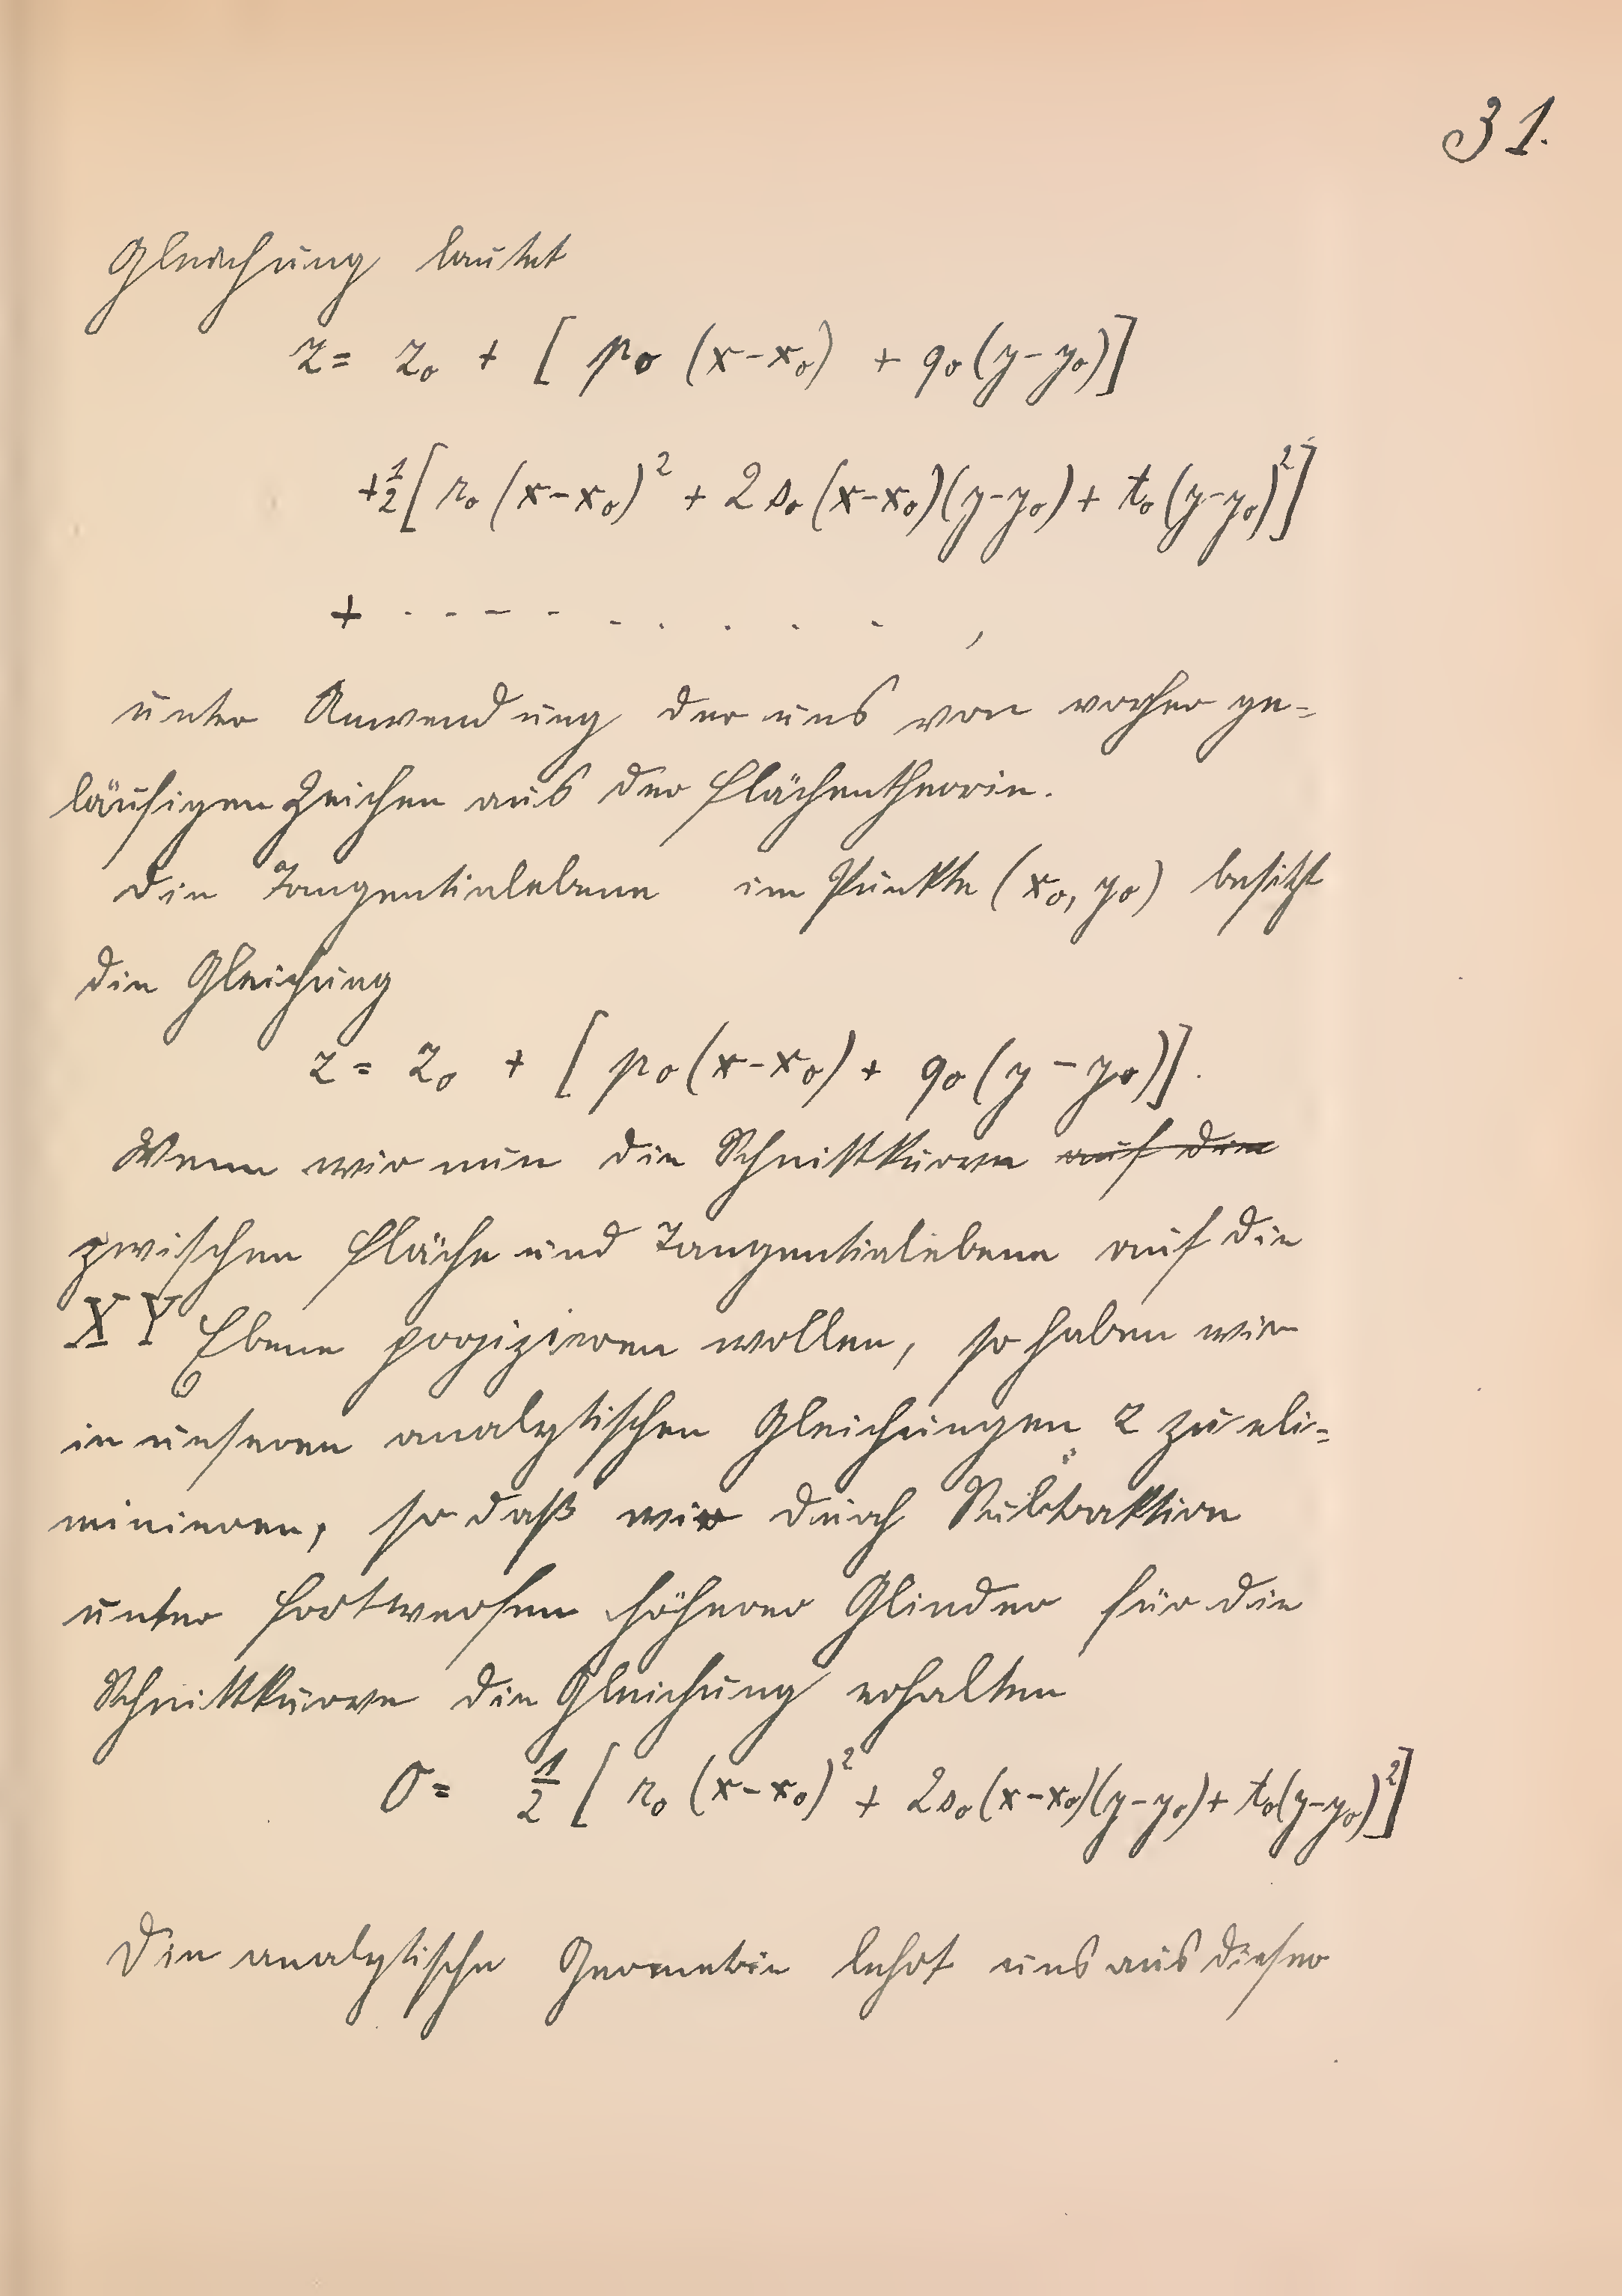 31.
Gleichung lautet
z = z₀ + [ p₀ (x-x₀) + q₀ (y-y₀)]
+ ½ [ r₀ (x-x₀)² + 2 s₀ (x-x₀)(y-y₀) + t₀ (y-y₀)²]
+ . - - - . . . . . ,
unter Anwendung der uns von vorher ge=
läufigen Zeichen aus der Flächentheorie.
Die Tangentialebene im Punkte (x₀, y₀) besitzt
die Gleichung
z = z₀ + [ p₀ (x-x₀) + q₀ (y-y₀)].
Wenn wir nun die Schnittkurve auf den
zwischen Fläche und Tangentialebene auf die
XY Ebene projizieren wollen, so haben wir
in unseren analytischen Gleichungen z zu eli=
minieren, so daß wir durch Subtraktion
unter Fortwerfen höherer Glieder für die
Schnittkurve die Gleichung erhalten
0 = ½ [ r₀ (x-x₀)² + 2s₀ (x-x₀)(y-y₀) + t₀(y-y₀)²]
Die analytische Geometrie lehrt uns aus dieser